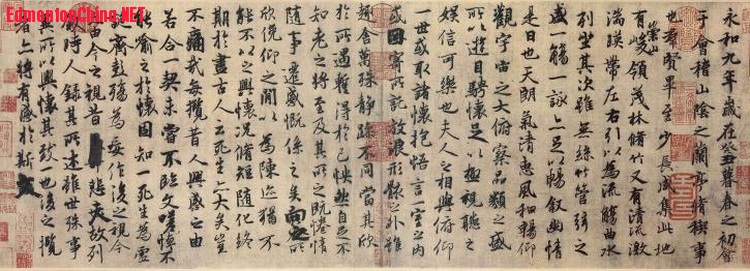 EdmontonChina.NET
永和九年歲在癸丑暮春之初會
于會稽山陰之蘭亭脩稧事
也群賢畢至少長咸集此地
有崇山峻領茂林脩竹又有清流激
湍暎帶左右引以為流觴曲水
列坐其次雖無絲竹管弦之
盛一觴一詠亦足以暢敘幽情
是日也天朗氣清惠風和暢仰
觀宇宙之大俯察品類之盛
所以遊目騁懷足以極視聽之
娛信可樂也夫人之相與俯仰
一世或取諸懷抱悟言一室之內
或因寄所託放浪形骸之外雖
趣舍萬殊靜躁不同當其欣
於所遇蹔得於己怏然自足不
知老之將至及其所之既惓情
隨事遷感慨係之矣向之所
欣俛仰之間以為陳迹猶不
能不以之興懷況脩短隨化終
期於盡古人云死生亦大矣豈
不痛哉每攬昔人興感之由
若合一契未嘗不臨文嗟悼不
能喻之於懷固知一死生為虛
誕齊彭殤為妄作後之視今
亦由今之視昔悲夫故列
敘時人錄其所述雖世殊事
異所以興懷其致一也後之攬
者亦將有感於斯文